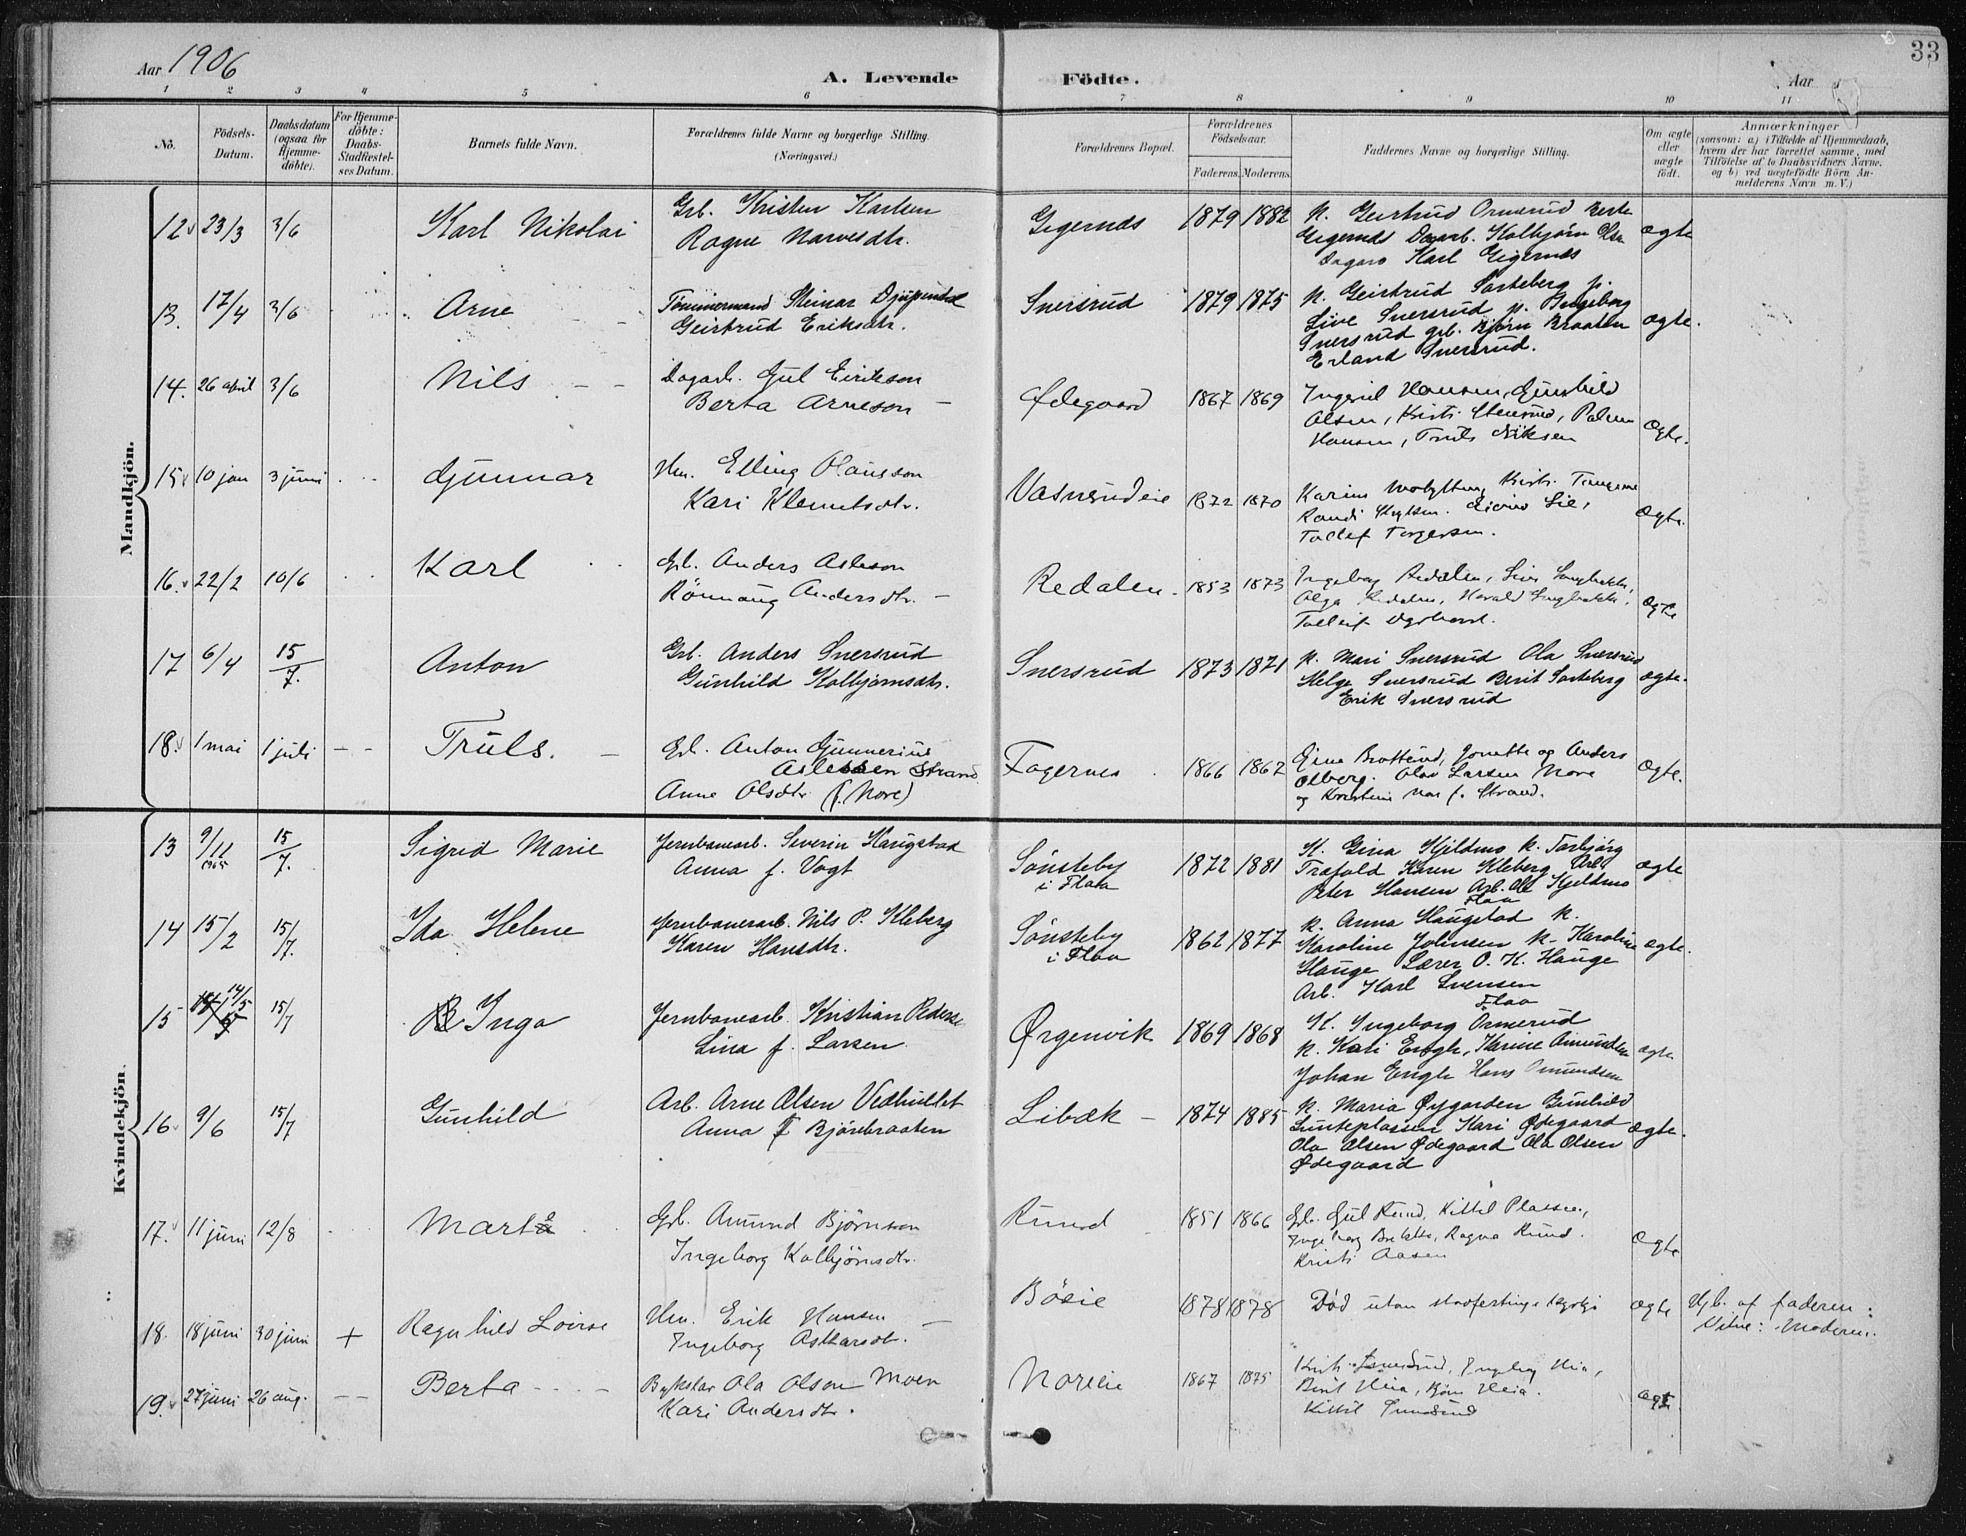 Aar 1906
A. Levende Födte.
Aar
33
1 2 3 4 5 6 7 8 9 10 11
No.
Födsels-Datum.
Daabsdatum (ogsaa for Hjemmedöbte).
For Hjemmedöbte: Daabs-Stadfæstelses Datum.
Barnets fulde Navn.
Forældrenes fulde Navne og borgerlige Stilling. (Næringsvei.)
Forældrenes Bopæl.
Forældrenes Födselsaar.
Faderens. Moderens.
Faddernes Navne og borgerlige Stilling.
Om ægte eller uægte födt.
Anmærkninger
(saasom: a) i Tilfælde af Hjemmedaab, hvem der har forrettet samme, med Tilföielse af to Daabsvidners Navne, og b) ved uægtefödte Börn Anmelderens Navn m. V.)
Mandkjön.
12 23/3 3/6 Karl Nikolai Grb. Kristen Karlsen
Ragne Narvesdtr. 1879 1882 K. Geirtrud Ormerud Berte
Dagarb. Kolbjørn
Karl ægte
13. 17/4 3/6 Arne Tömmermand Steinar
Geirtrud Eriksdtr. Snersrud 1879 1875 K. Geirtrud Sarteberg p.
Live Snersrud p. Ingeborg
Snersrud grb. Björn Braaten
Erland Snersrud. ægte.
14. 26 april 3/6 Nils Dagarb. Gul Eirikson
Berta Arneson Ødegaard 1867 1869 Hansen, Gunhild
Olsen, Kristi
Hansen, Truls Eriksen ægte.
15 10 jan 3 juni Gunnar Hm. Elling Olausson
Kari Klemetsdtr. 1872 1870
Randi Lie,
Tollef Torgersen. Ægte.
16. 22/2 10/6 Karl Gbr. Anders Asleson
Rönnaug Andersdtr. Redalen 1853 1873 Ingeborg Redalen, Live
Olga Redalen, Harald
Tolleif ægte
17 6/4 15/7. Anton Grb. Anders Snersrud
Gunhild Kolbjørnsdtr. Snersrud 1873 1871 K. Mari Snersrud Ola Snersrud
Helge Snersrud Berit Sarteberg
Erik Snersrud ægte.
18. 1 mai 1 juli Truls. Anton Gunnerius
Aslessen Strand
Anne Olsdtr (f. Nore) Fagernes 1866 1862 Jonette og Anders
Olberg. Olav Larsen Nore
og Strand. Ægte.
Kvindekjön.
13 9/11 1905 15/7. Sigrid Marie Jernbanearb. Severin Haugstad
Anna f. Vogt Sönsteby
i Flaa 1872 1881 K. Gina Kjeldmo K. Torbjørg
Trøfald Karen Kleberg Arb.
Peter Hansen Arb. Ole Kjeldmo
Flaa ægte
14 15/2 15/7. Ida Helene Jernbanearb. Nils P. Kleberg
Karen Hansdtr. Sönsteby
i Flaa 1862 1877 K. Anna Haugstad K.
Karoline Johnsen K. Karoline
Hauge Lærer O. K. Hauge
Arb. Karl Svensen
Flaa ægte.
15 14/5 15/7 Inga Jernbanearb. Kristian Peders
Lina f. Larsen Ørgenvik 1869 1868 K. Ingeborg Ormerud
K. Kari Engh, Karine Amundsen
Johan Engh Hans Amundsen ægte
16 9/6 15/7 Gunhild Arb. Arne Olsen Vedhullet
Anna f. Björebraaten Libæk 1874 1885 K. Maria Øygarden Gunhild
Kari Ødegaard
Ola Olsen Ødegaard Ola Olsen
Ødegaard ægte.
17. 11 juni 12/8 Marta Gbr. Amund Björnson
Ingeborg Kolbjörnsdtr. Rund 1851 1866 Gbr. Gul Rund, Kittil Plassen,
Ingeborg Ragna Rund.
Kristi Aasen Ægte
18. 18 juni 30 juni + Ragnhild Lovise Hm. Erik Hansen
Ingeborg Bösie 1878 1878 Död utan ægte Hjb. af faderen:
Vitne: Moderen.
19. 27 juni 26 aug. Berta Bykslar Ola Olson Moen
Kari Andersdtr. Noreie 1867 1875 Kristi Ingebor Heia,
Berit Heia, Björn Heia.
Kittil ægte